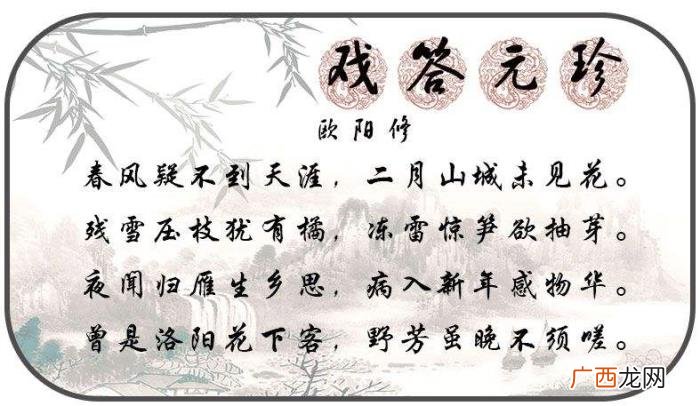 戏答元珍
欧阳修
春风疑不到天涯，二月山城未见花。
残雪压枝犹有橘，冻雷惊笋欲抽芽。
夜闻归雁生乡思，病入新年感物华。
曾是洛阳花下客，野芳虽晚不须嗟。
广西龙网